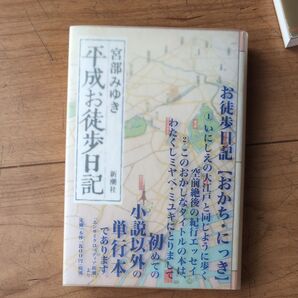 宮部みゆき
平成お徒歩日記
新潮社
お徒歩日記【おかち・にっき】
1 いにしえの大江戸と同じように歩く
空前絶後の紀行エッセイ
2 このおかしなタイトルの本は、
わたくしミヤベ・ミユキにとりまして
初めての
小説以外の
単行本
であります